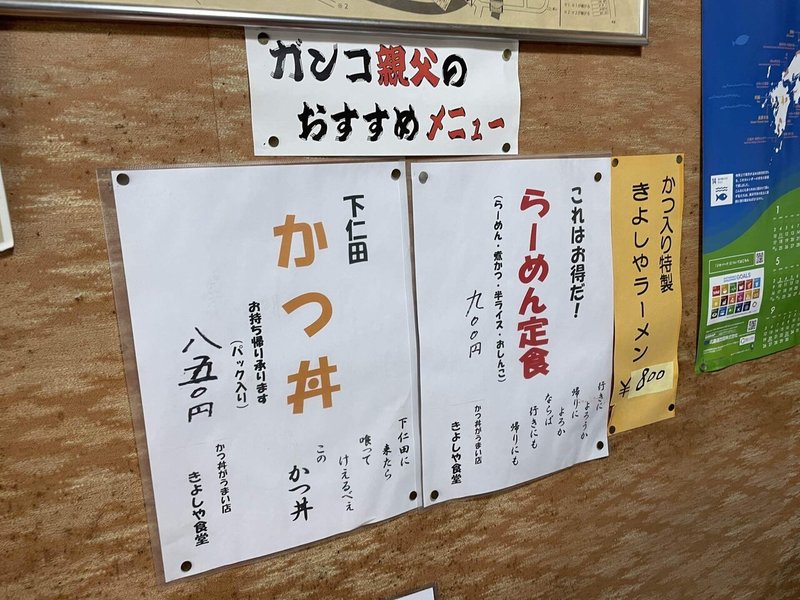 ガンコ親父の
おすすめメニュー
かつ入り特製
きよしやラーメン
¥800
これはお得だ!
らーめん定食
(らーめん・煮かつ・半ライス・おしんこ)
九〇〇円
行きに
よろうか
帰りに
よろか
ならば
行きにも
帰りにも
かつ丼がうまい店
きよしや食堂
下仁田
かつ丼
お持ち帰り承ります
(パック入り)
八五〇円
下仁田に
来たら
喰って
けえるべえ
この
かつ丼
かつ丼がうまい店
きよしや食堂